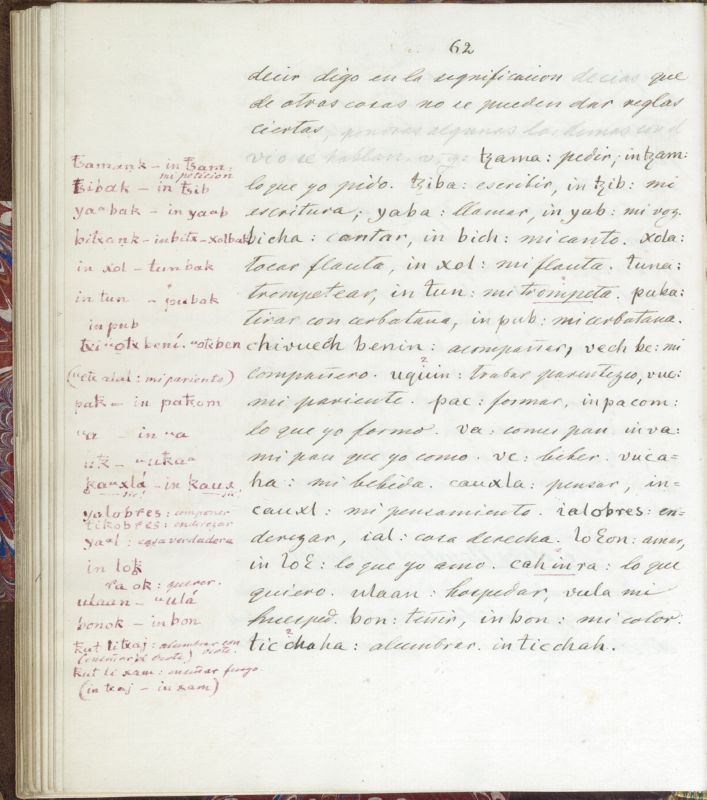 62
decir digo en la significacion decias que
de otras cosas no se pueden dar reglas
ciertas, pondras algunas las demas con el
vio se hablan. v.g: tzama: pedir, intzam:
lo que yo pido. tziba: escribir, in tzib: mi
escritura; yaba: llamar, in yab: mi voz.
bicha: cantar, in bich: mi canto. xola:
tocar flauta, in xol: mi flauta. tuna:
trompetear, in tun: mi trompeta. puba:
tirar con cerbatana, in pub: mi cerbatana.
chivuech benin: acompañar, vech be: mi
compañero. uquin: trabar parentezco, vuc:
mi pariente. pac: formar, inpacom:
lo que yo formo. va: comer pan inva:
mi pan que yo como. vc: beber. vuca=
ha: mi bebida. cauxla: pensar, in=
cauxl: mi pensamiento. ialobres: en=
derezar, ial: cosa derecha. loƐon: amar,
in loƐ: lo que yo amo. cahinra: lo que
quiero. ulaan: hospedar, vula mi
huesped. bon: teñir, in bon: mi color.
tic chaha: alumbrar. in ticchah.
tzamank – in tzam:
mi peticion
tzibak – in tzib
yaⁿbak – in yaⁿb
bitxank – in bitx – xolbak
in xol – tunbak
in tun – pubak
in pub
txiⁿotx bení. ⁿotxben
(ⁿctx alal: mi pariente)
pak – in pakom
ⁿa – in ⁿa
uk – ⁿukaⁿ
kaⁿxlá – in kaux
yalobres: componer
tikobres: enderezar
yaⁿl: cosa verdadera
in lok
ra ok: querer.
ulaan – ⁿulá
bonok – in bon
kut li txaj: alumbrar con
(enseñar de ocote) ocote.
kut li xam: enseñar fuego
(in txaj – in xam)